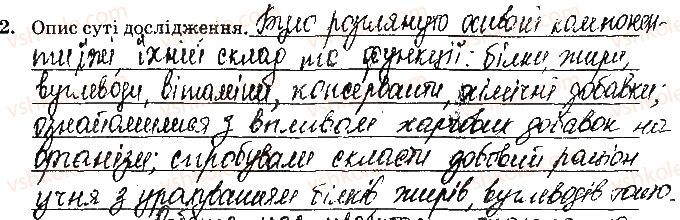 2. Опис суті дослідження. Було розглянуто основні компонен-
ти їжі, їхній склад та функції: білки, жири,
вуглеводи, вітаміни, консерванти, хімічні добавки;
ознайомилися з впливом харчових добавок на
організм; спробували скласти добовий раціон
учня з урахуванням білків, жирів, вуглеводів